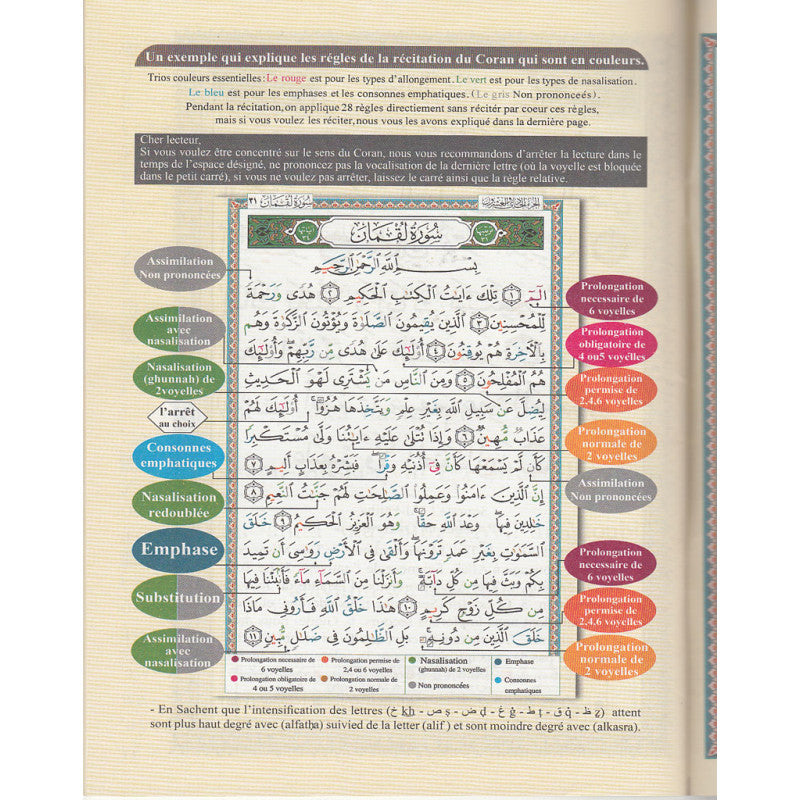 Un exemple qui explique les régles de la récitation du Coran qui sont en couleurs.
Trios couleurs essentielles: Le rouge est pour les types d'allongement. Le vert est pour les types de nasalisation.
Le bleu est pour les emphases et les consonnes emphatiques. (Le gris Non prononceés).
Pendant la récitation,on applique 28 règles directement sans récitér par coeur ces règles,
mais si vous voulez les réciter,nous vous les avons expliqué dans la dernière page.
Cher lecteur,
Si vous voulez être concentré sur le sens du Coran, nous vous recommandons d'arrêter la lecture dans le
temps de l'espace désigné, ne prononcez pas la vocalisation de la dernière lettre (où la voyelle est bloquée
dans le petit carré), si vous ne voulez pas arrêter, laissez le carré ainsi que la règle relative.
سُورَةُ لُقْمَان ٣١
سُورَةُ لُقْمَان
بِسْمِ اللَّهِ الرَّحْمَٰنِ الرَّحِيمِ
الٓمٓ ١ تِلْكَ ءَايَٰتُ الْكِتَٰبِ الْحَكِيمِ ٢ هُدًى وَرَحْمَةً
لِّلْمُحْسِنِينَ ٣ الَّذِينَ يُقِيمُونَ الصَّلَوٰةَ وَيُؤْتُونَ الزَّكَوٰةَ وَهُم
بِالْأَخِرَةِ هُمْ يُوقِنُونَ ٤ أُوْلَٰٓئِكَ عَلَىٰ هُدًى مِّن رَّبِّهِمْ وَأُوْلَٰٓئِكَ
هُمُ الْمُفْلِحُونَ ٥ وَمِنَ النَّاسِ مَن يَشْتَرِى لَهْوَ الْحَدِيثِ
لِيُضِلَّ عَن سَبِيلِ اللَّهِ بِغَيْرِ عِلْمٍ وَيَتَّخِذَهَا هُزُوًا أُوْلَٰٓئِكَ لَهُمْ
عَذَابٌ مُّهِينٌ ٦ وَإِذَا تُتْلَىٰ عَلَيْهِ ءَايَٰتُنَا وَلَّىٰ مُسْتَكْبِرًا
كَأَن لَّمْ يَسْمَعْهَا كَأَنَّ فِىٓ أُذُنَيْهِ وَقْرًا فَبَشِّرْهُ بِعَذَابٍ أَلِيمٍ ٧
إِنَّ الَّذِينَ ءَامَنُوا وَعَمِلُوا الصَّٰلِحَٰتِ لَهُمْ جَنَّٰتُ النَّعِيمِ ٨
خَٰلِدِينَ فِيهَا وَعْدَ اللَّهِ حَقًّا وَهُوَ الْعَزِيزُ الْحَكِيمُ ٩ خَلَقَ
السَّمَٰوَٰتِ بِغَيْرِ عَمَدٍ تَرَوْنَهَا وَأَلْقَىٰ فِى الْأَرْضِ رَوَٰسِىَ أَن تَمِيدَ
بِكُمْ وَبَثَّ فِيهَا مِن كُلِّ دَآبَّةٍ وَأَنزَلْنَا مِنَ السَّمَآءِ مَآءً فَأَنۢبَتْنَا فِيهَا
مِن كُلِّ زَوْجٍ كَرِيمٍ ١٠ هَٰذَا خَلْقُ اللَّهِ فَأَرُونِى مَاذَا
خَلَقَ الَّذِينَ مِن دُونِهِ بَلِ الظَّٰلِمُونَ فِى ضَلَٰلٍ مُّبِينٍ ١١
Assimilation
Non prononcées
Assimilation
avec
nasalisation
Nasalisation
(ghunnah) de
2voyelles
l'arrêt
au choix
Consonnes
emphatiques
Nasalisation
redoublée
Emphase
Substitution
Assimilation
avec
nasalisation
Prolongation
necessaire de
6 voyelles
Prolongation
obligatoire de
4 ou5 voyelles
Prolongation
permise de
2,4,6 voyelles
Prolongation
normale de
2 voyelles
Assimilation
Non prononcées
Prolongation
necessaire de
6 voyelles
Prolongation
permise de
2,4,6 voyelles
Prolongation
normale de
2 voyelles
Prolongation necessaire de
6 voyelles
Prolongation permise de
2,4 ou 6 voyelles
Nasalisation
(ghunnah) de 2 voyelles
Emphase
Prolongation obligatoire de
4 ou 5 voyelles
Prolongation normale de
2 voyelles
Non prononcées
Consonnes
emphatiques
- En Sachent que l'intensification des lettres (خ kh - ص ṣ - ض ḍ - غ ġ - ط ṭ - ق q̇ - ظ ẓ) attent
sont plus haut degré avec (alfatḥa) suivied de la letter (alif) et sont moindre degré avec (alkasra).